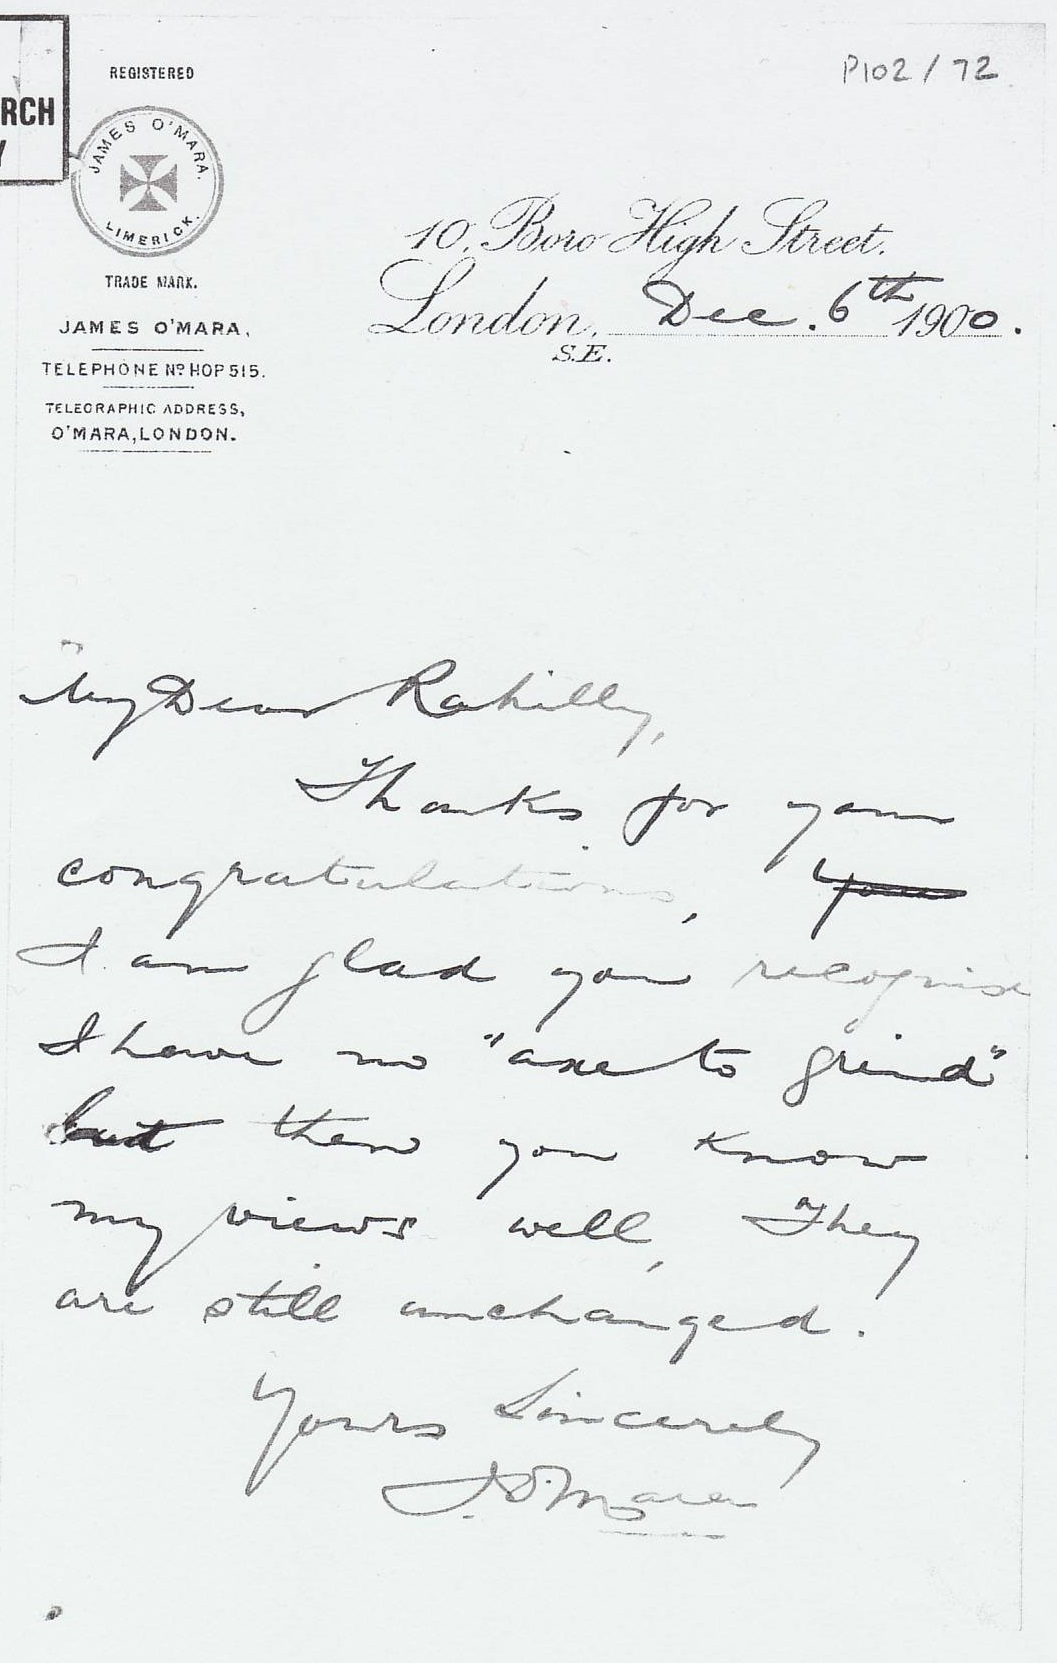 RCH
Y
P102/72
REGISTERED
JAMES O'MARA.
LIMERICK.
TRADE MARK.
JAMES O'MARA,
TELEPHONE Nº HOP 515.
TELEGRAPHIC ADDRESS,
O'MARA, LONDON.
10, Boro High Street.
London, Dec. 6th 1900.
S.E.
My Dear Rahilly,
Thanks for your
congratulations, You
I am glad you recognise
I have no "axe to grind"
but then you know
my views well, They
are still unchanged.
Yours Sincerely
J. O'Mara